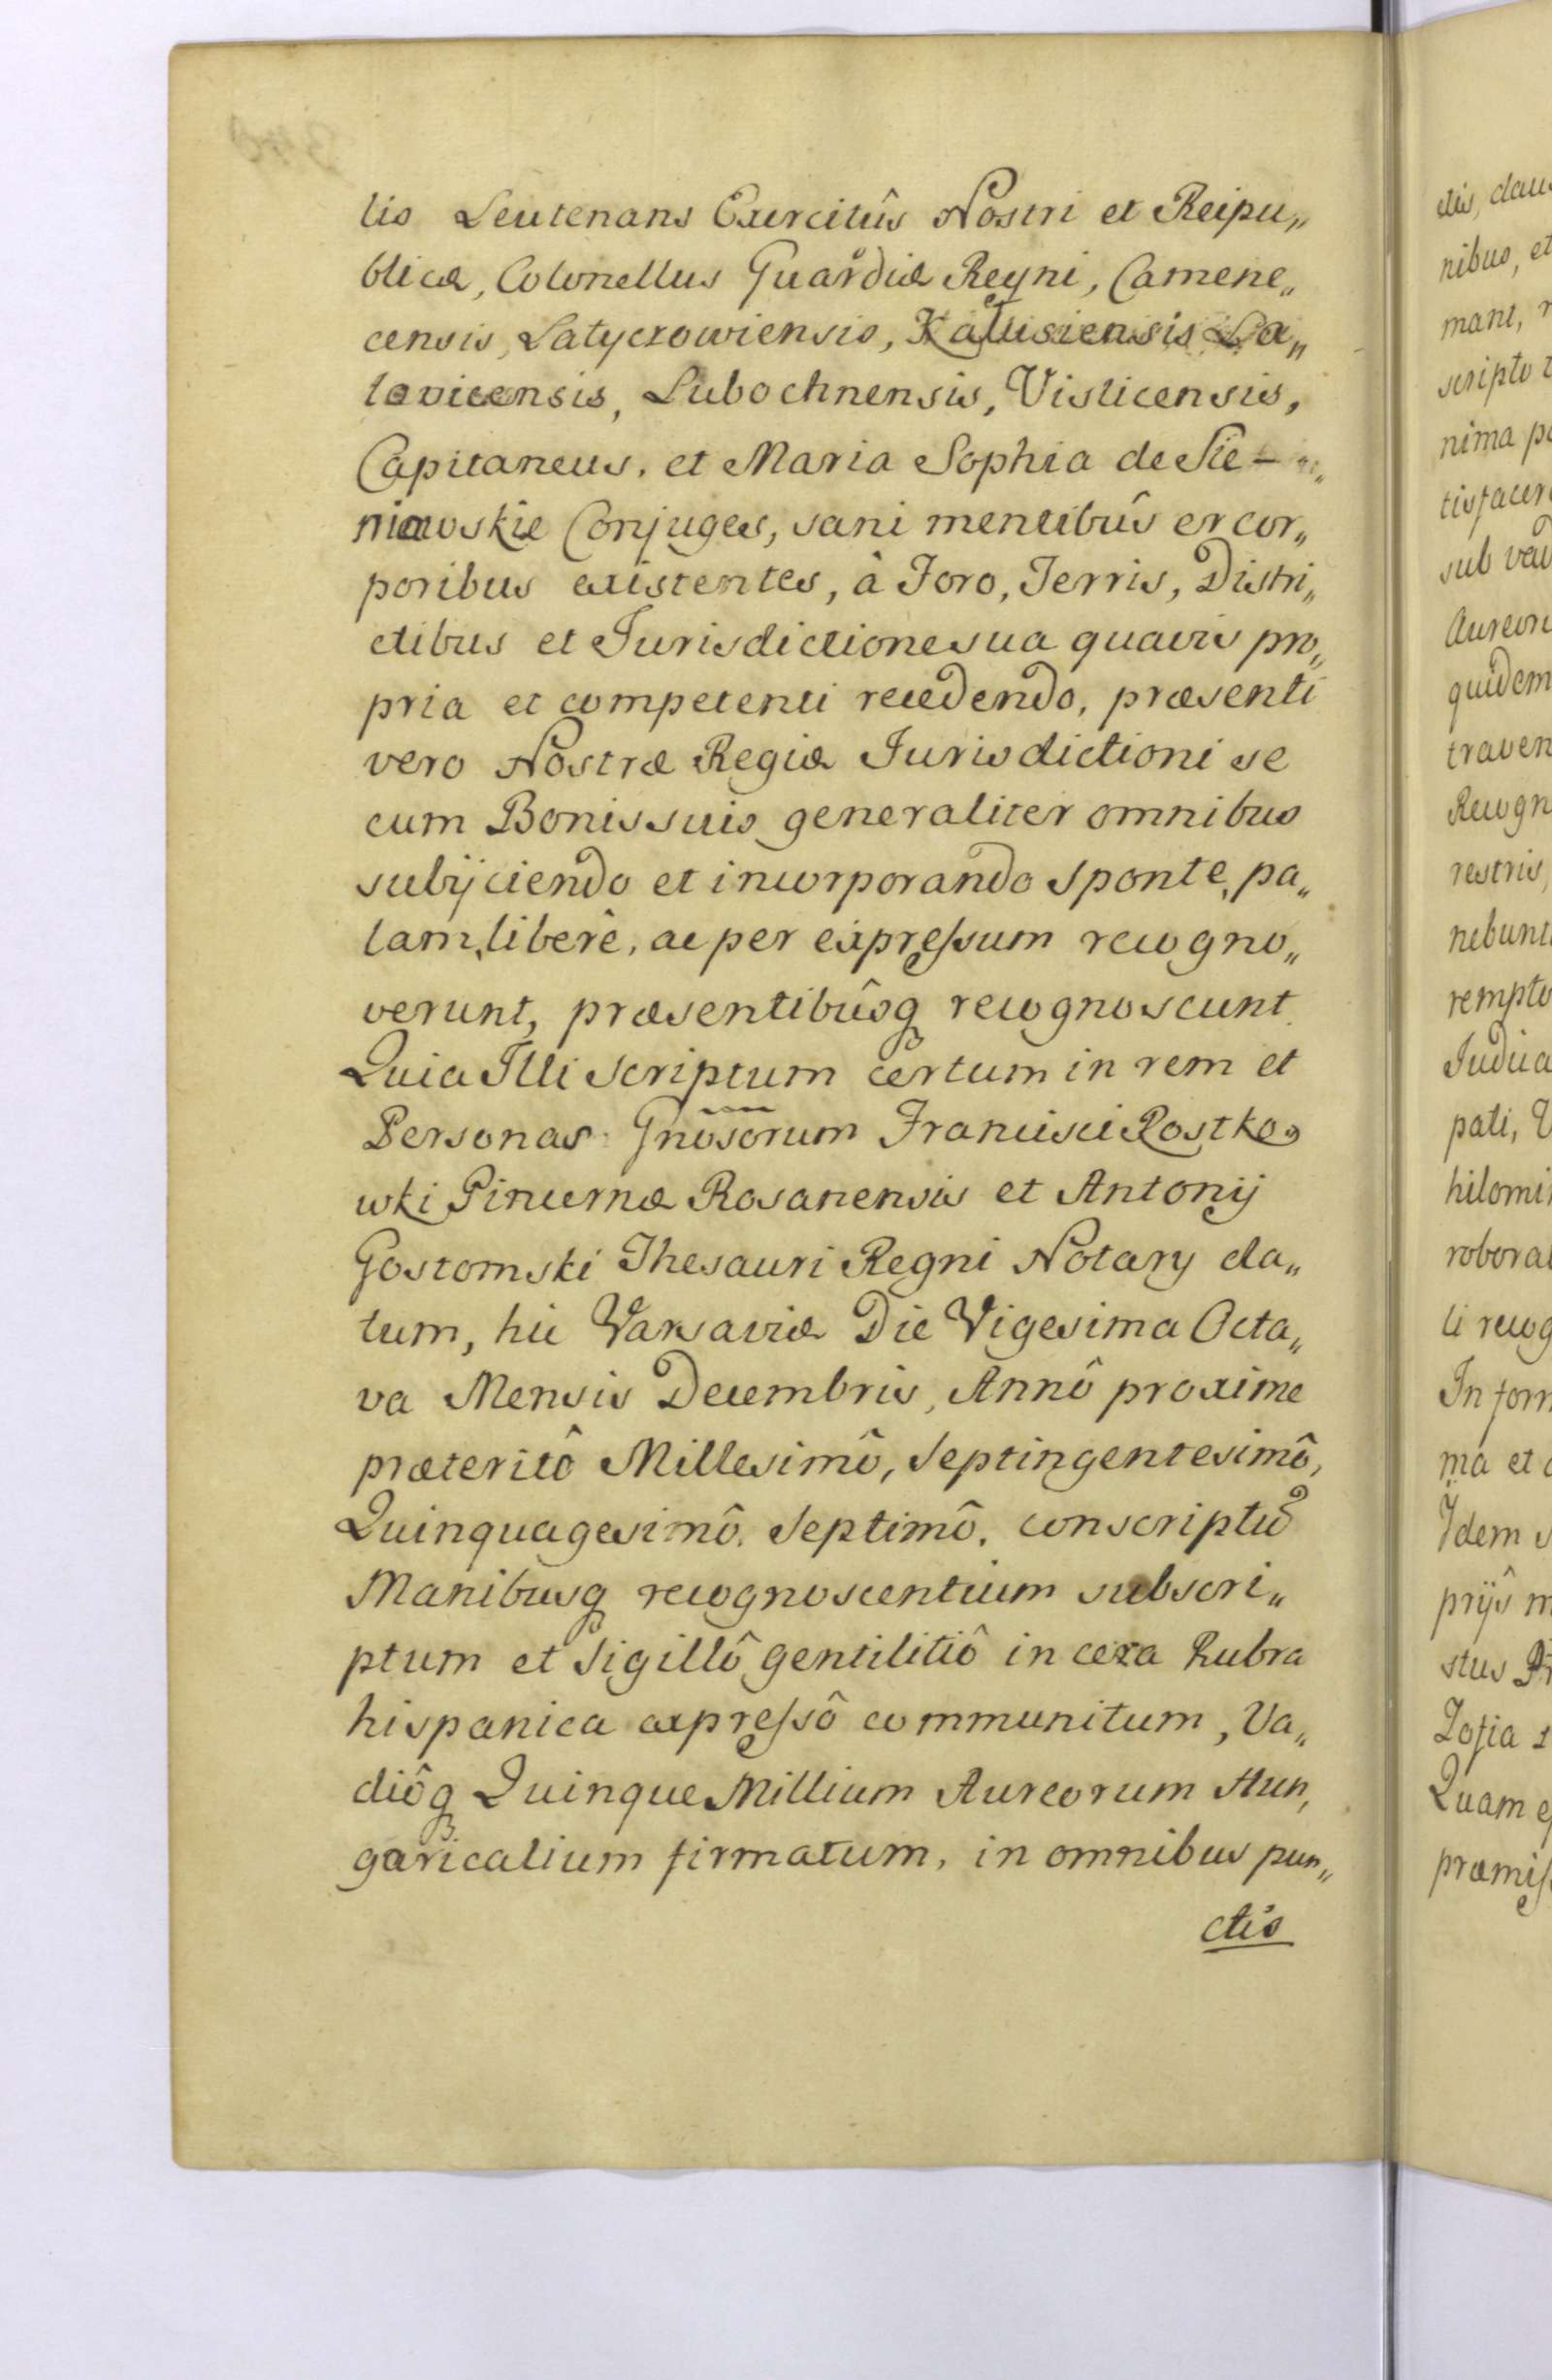 lis Leutenans Exercitûs Nostri et Reipu„
blicæ, Colonellus Guardiæ Regni, Camene„
censis, Latyczowiensis, Kałusiensis La„
tovicensis, Lubochnensis, Vislicensis,
Capitaneus, et Maria Sophia de Sie-
niawskie Conjuges, sani mentibûs et cor„
poribus existentes, â Foro, Terris, Distri„
ctibus et Jurisdictione sua quavis pro„
pria et competenti recedendo, præsenti
vero Nostræ Regiæ Jurisdictioni se
cum Bonis suis generaliter omnibus
subijciendo et incorporando sponte, pa„
lam, liberê, ac per expressum recogno„
verunt, præsentibûsq recognoscunt.
Quia Illi scriptum certum in rem et
Personas Gnosorum Francisci Rostko„
wki Pincernæ Rosanensis et Antonij
Gostomski Thesauri Regni Notary da„
tum, hic Varsaviæ Die Vigesima Octa„
va Mensis Decembris, Annô proxime
præteritô Millesimô, Septingentesimô,
Quinquagesimô, Septimô, conscriptũ
Manibusq recognoscentium subscri„
ptum et sigillô gentilitiô in cera Rubra
hispanica expressô communitum, Va„
diôq Quinque Millium Aureorum Hun„
garicalium firmatum, in omnibus pun„
ctis
ctis, clau
nibus, et
mant, r
scripto
nima p
tisfacer
sub va
Aureor
quidem
traven
Recogn
restris,
nebunt
rempto
Judica
pati,
hilomi
robora
ti recog
In form
ma et
Idem s
prijs m
stus
Zofia
Quam
præmis